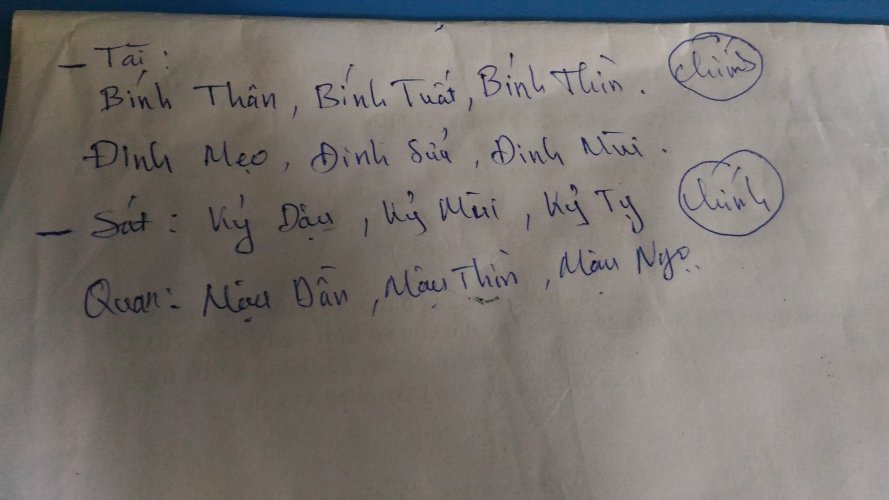 - Tài :
Bính Thân, Bính Tuất, Bính Thìn. chính
Đinh Mẹo, Đinh Sửu, Đinh Mùi.
- Sát : Kỷ Dậu, Kỷ Mùi, Kỷ Tỵ chính
Quan : Mậu Dần, Mậu Thìn, Mậu Ngọ.